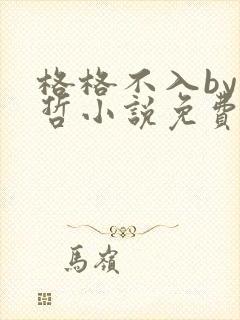 格格不入by
哲小說免費
馬嶺